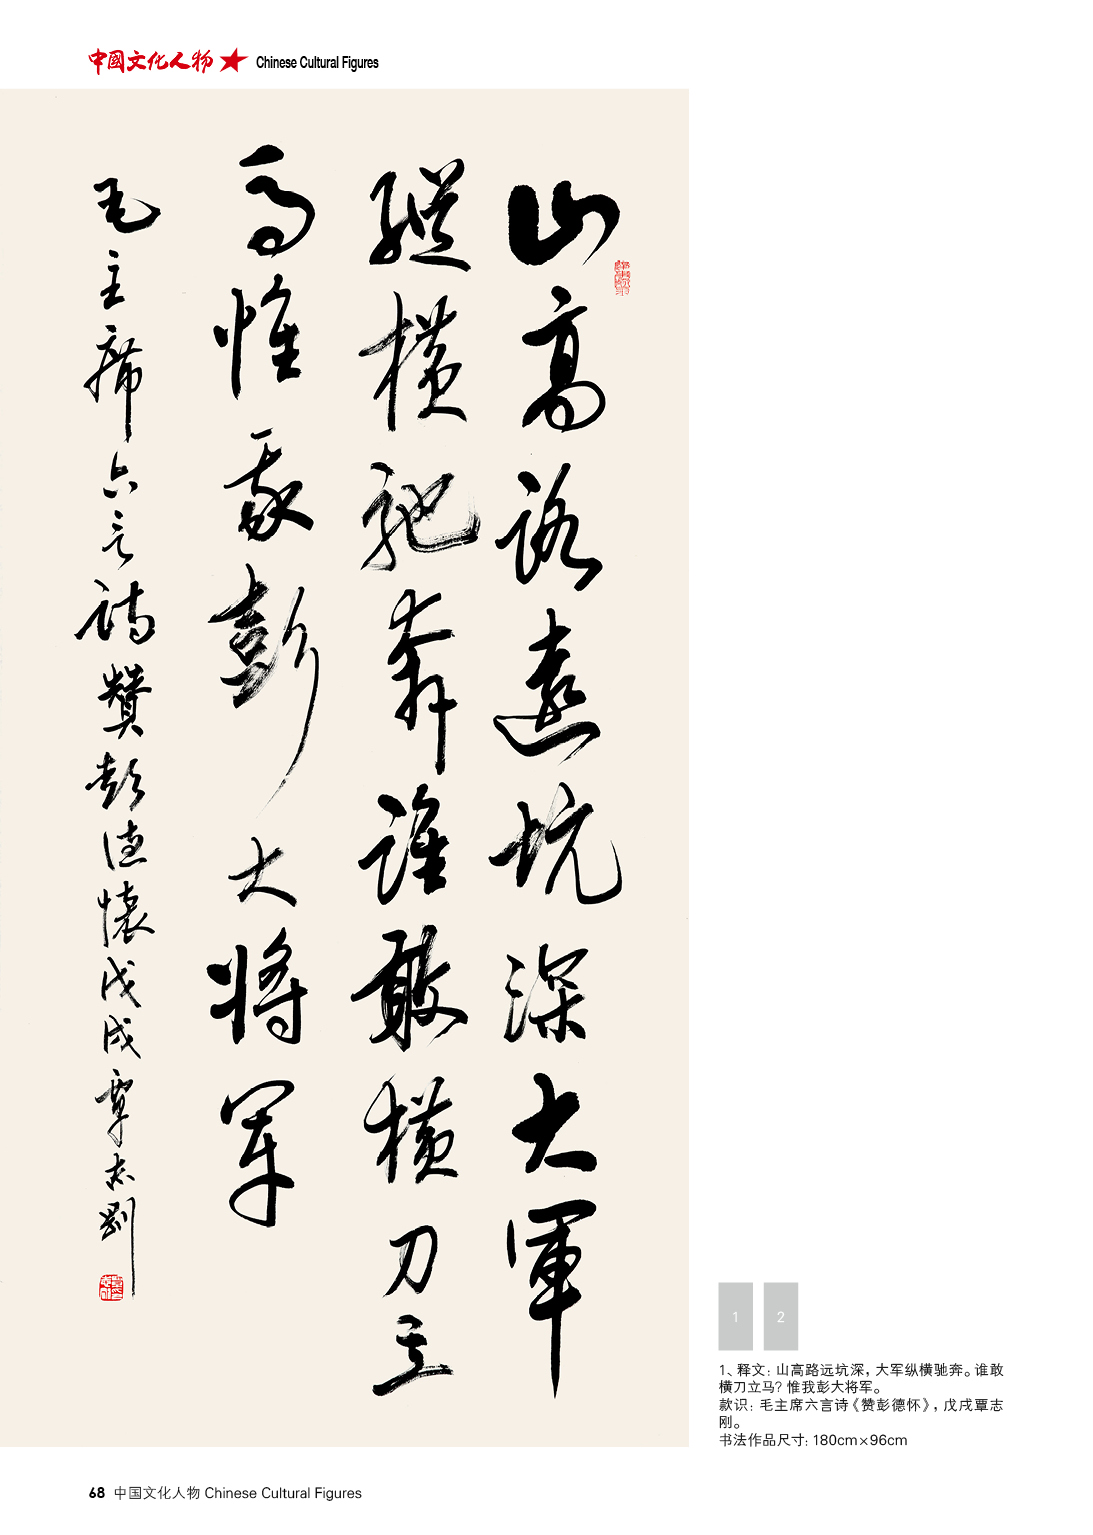 中國文化人物 Chinese Cultural Figures
山高路遠坑深大軍
縱橫馳奔誰敢橫刀立
馬惟我彭大将军
毛主席六言詩贊彭德懷戊戌覃志剛
1 2
1、释文：山高路远坑深，大军纵横驰奔。谁敢
横刀立马？惟我彭大将军。
款识：毛主席六言诗《赞彭德怀》，戊戌覃志
刚。
书法作品尺寸：180cm×96cm
68 中国文化人物 Chinese Cultural Figures